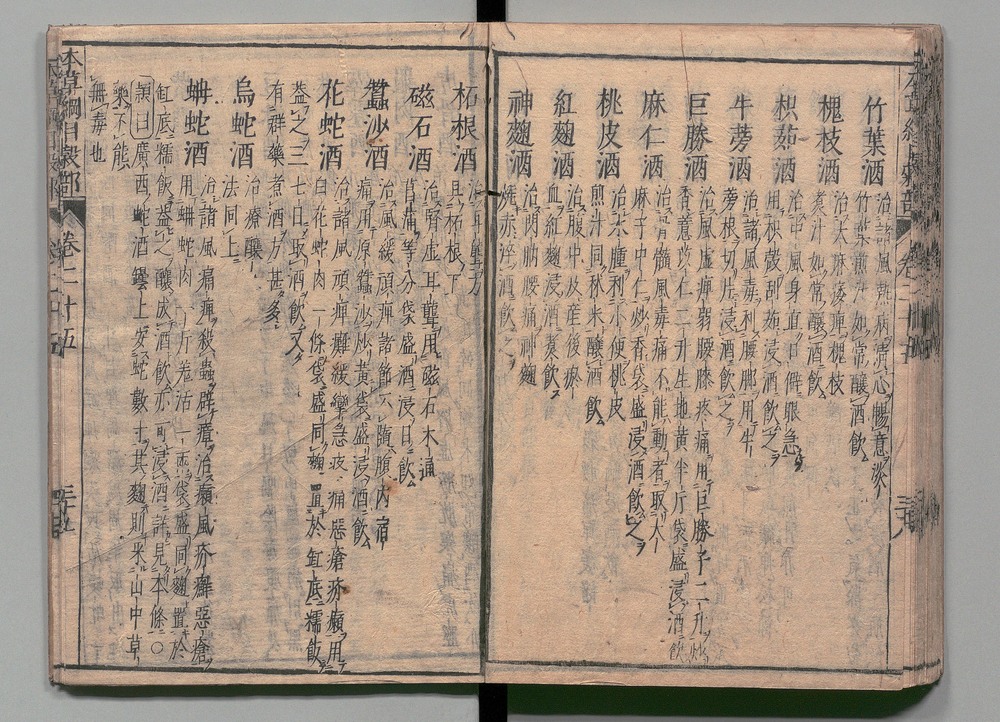 竹葉酒
治諸風熱病清心暢意淡
竹葉煎汁如常釀酒飲
槐枝酒
治大麻痿痺槐枝
煮汁如常釀酒飲
枳茹酒
治中風身直口僻眼急
用枳殼刮茹浸酒飲之
牛蒡酒
治諸風毒利腰脚用牛
蒡根切片浸酒飲之
巨勝酒
治風虛痺弱腰膝疼痛用巨勝子二升炒
香薏苡仁二升生地黃半斤袋盛浸酒飲
麻仁酒
治骨髓風毒痛不能動者取大
麻子中仁炒香袋盛浸酒飲之
桃皮酒
治水腫利小便桃皮
煎汁同秫米釀酒飲
紅麴酒
治腹中及產後瘀
血紅麴浸酒煮飲
神麴酒
治閃肭腰痛神麴
燒赤淬酒飲之
柘根酒
具柘根下
磁石酒
治腎虛耳聾用磁石木通
菖蒲等分袋盛酒浸日飲
蠶沙酒
治風緩頑痺諸節不隨腹內宿
痛用原蠶沙炒黃袋盛浸酒飲
花蛇酒
治諸風頑痺癱緩攣急疼痛惡瘡疥癩用
白花蛇肉一條袋盛同麴置於缸底糯飯
蓋之三七日取酒飲又
有群藥煮酒方甚多
烏蛇酒
治療釀
法同上
蚺蛇酒
治諸風痛痺殺蟲辟瘴治癩風疥癬惡瘡
用蚺蛇肉一斤羌活一兩袋盛同麴置於
缸底糯飯蓋之釀成酒飲亦可浸酒詳見本條〇
穎曰廣西蛇酒罈上安蛇數寸其麴則采山中草
藥不能無毒也
本草綱目穀部 卷二十五